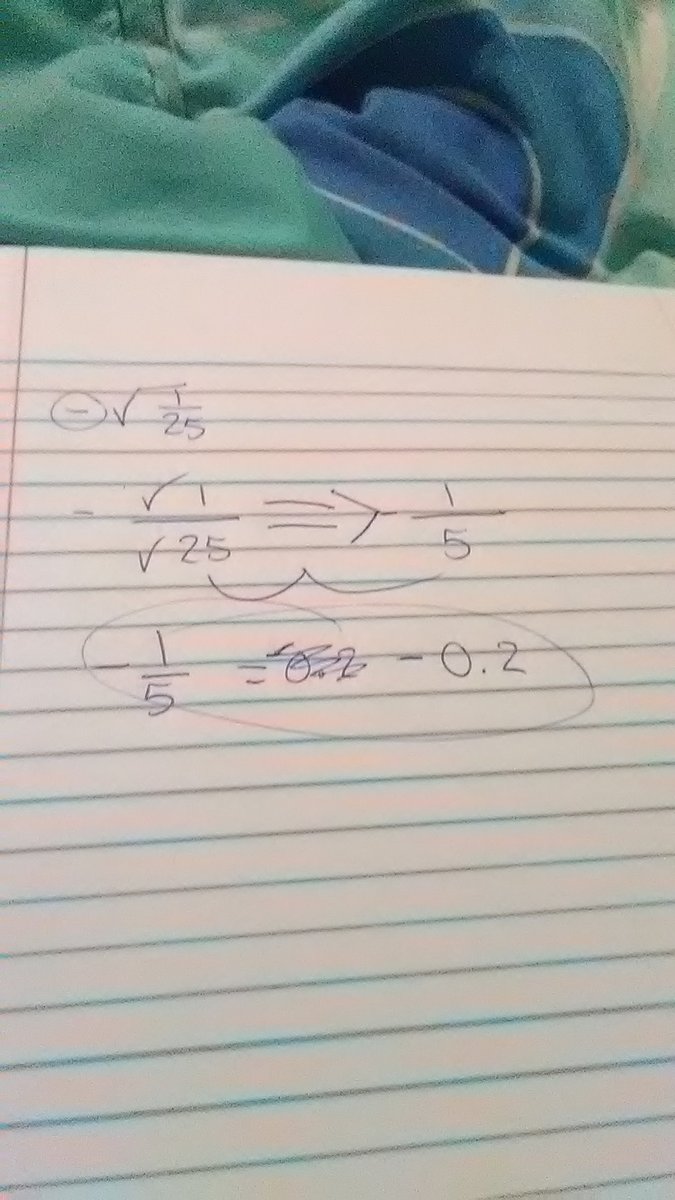 -√1/25
- √1/√25 => - 1/5
- 1/5 = -0.2